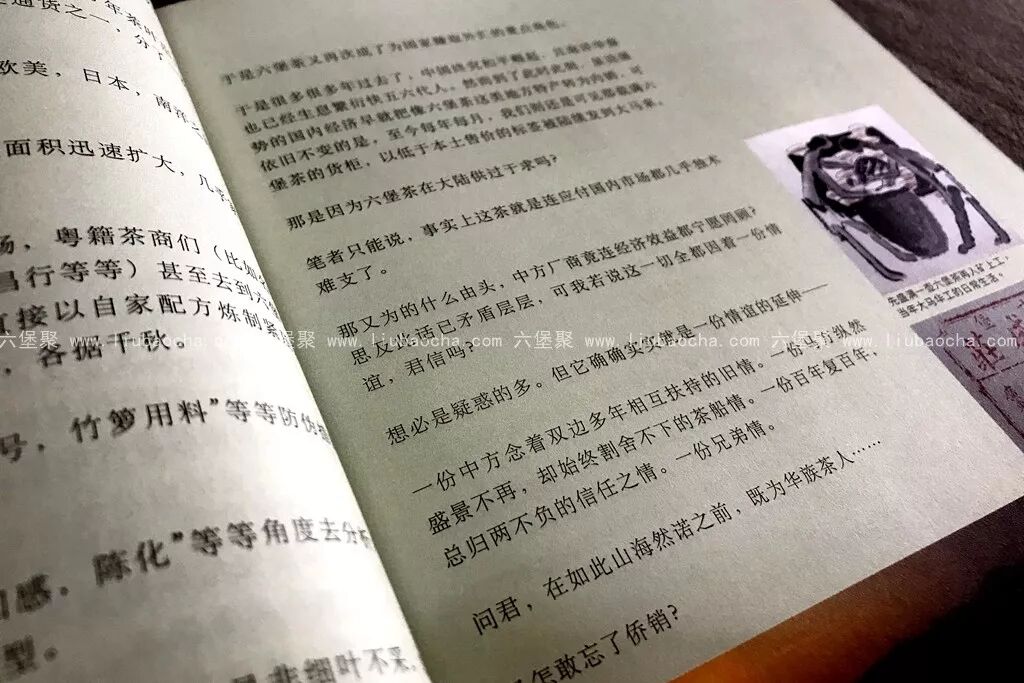 欧美，日本，南洋之
面积迅速扩大，几
场，粤籍茶商们（比如
昌行等等）甚至去到六
直接以自家配方炼制
，各据千秋
号，竹箩用料”等等防伪
陈化”等等角度去分
口感，
型。
是非细叶不采，
于是六堡茶又再次成了为国家赚取外汇的重点角色。
于是很多很多年过去了，中国终究和平崛起，且南洋华裔
也已经生息繁衍快五六代人。然而到了此时此刻，
势的国内经济早就把像六堡茶这类地方特产转为内销，可
依旧不变的是，至今每年每月，我们则还是可见那载满六
堡茶的货柜，以低于本土售价的标签被陆续发到大马来。
那是因为六堡茶在大陆供过于求吗？
笔者只能说，事实上这茶就是连应付国内市场都几乎独木
难支了。
那又为的什么由头，中方厂商竟连经济效益都宁愿罔顾？
思及此话已矛盾层层，可我若说这一切全都因着一份情
谊，君信吗？
想必是疑惑的多。但它确确实实就是一份情谊的延伸——
一份中方念着双边多年相互扶持的旧情。一份马方纵然
盛景不再，却始终割舍不下的茶船情。一份百年复百年，
总归两不负的信任之情。一份兄弟情。
问君，在如此山海然诺之前，既为华族茶人……
怎敢忘了侨销？
充盛满一壶六堡茶再入矿上工，
当年大马华工的日常生活。
六堡聚 www.liubaocha.com 六堡聚 www.liubaocha.com 六堡聚 www.liubaocha.com 六堡聚 www.liubaocha.com